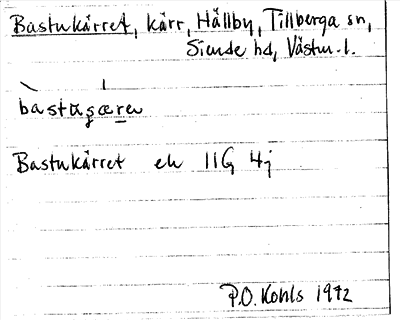 Bastukärret, kärr, Hällby, Tillberga sn,
Siende hd, Västm. l.
bastugæren
Bastukärret ek 11G 4j
P.O. Kohls 1972